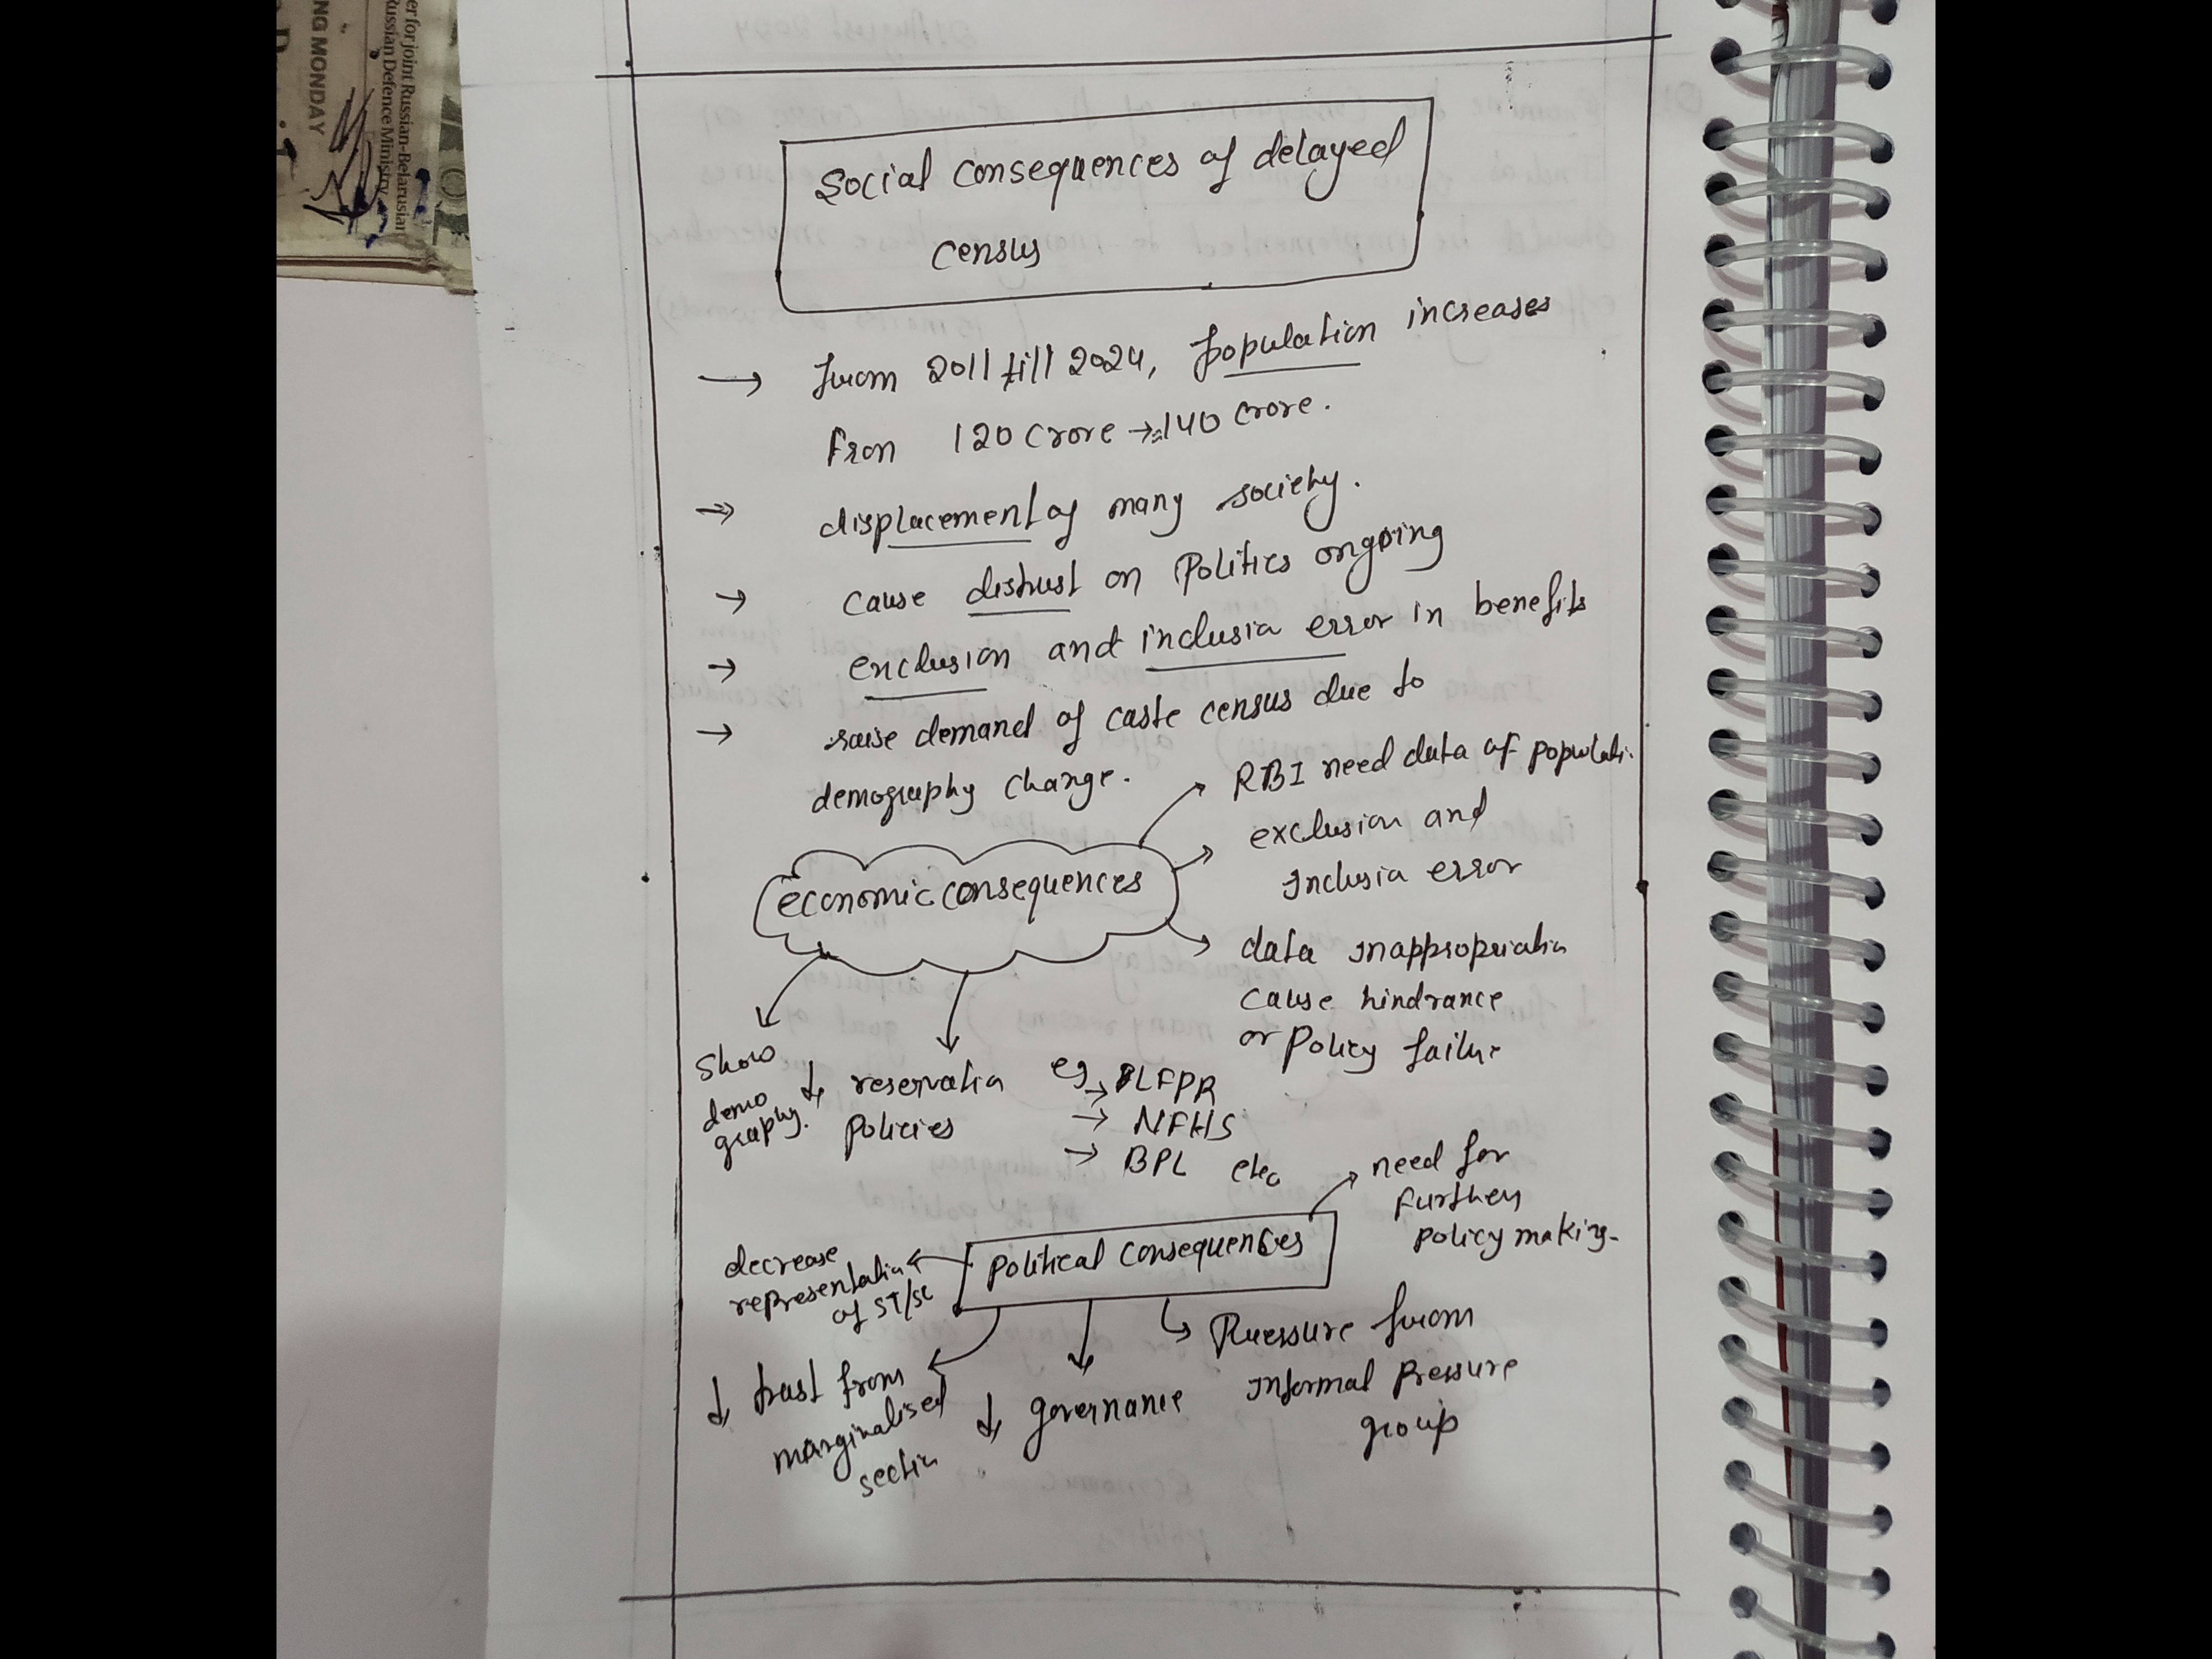 NG MONDAY
er for joint Russian-Belarusian
Russian Defence Ministry
Social Consequences of delayed
Census
→ from 2011 till 2024, population increases
from 120 Crore → 140 Crore.
→ displacement of many society.
→ cause distrust on Politics ongoing
→ exclusion and inclusion error in benefits
→ raise demand of caste census due to
demography change.
RBI need data of populati.
exclusion and
Inclusion error
economic consequences
data inappropriation
cause hindrance
or policy failure
show
demo
graphy.
↓ reservation
policies
eg → PLFPR
→ NFHS
→ BPL etc
need for
further
policy making.
Political Consequences
decrease
representation
of ST/SC
Pressure from
Informal Pressure
group
↓ trust from
marginalised
section
↓ governance